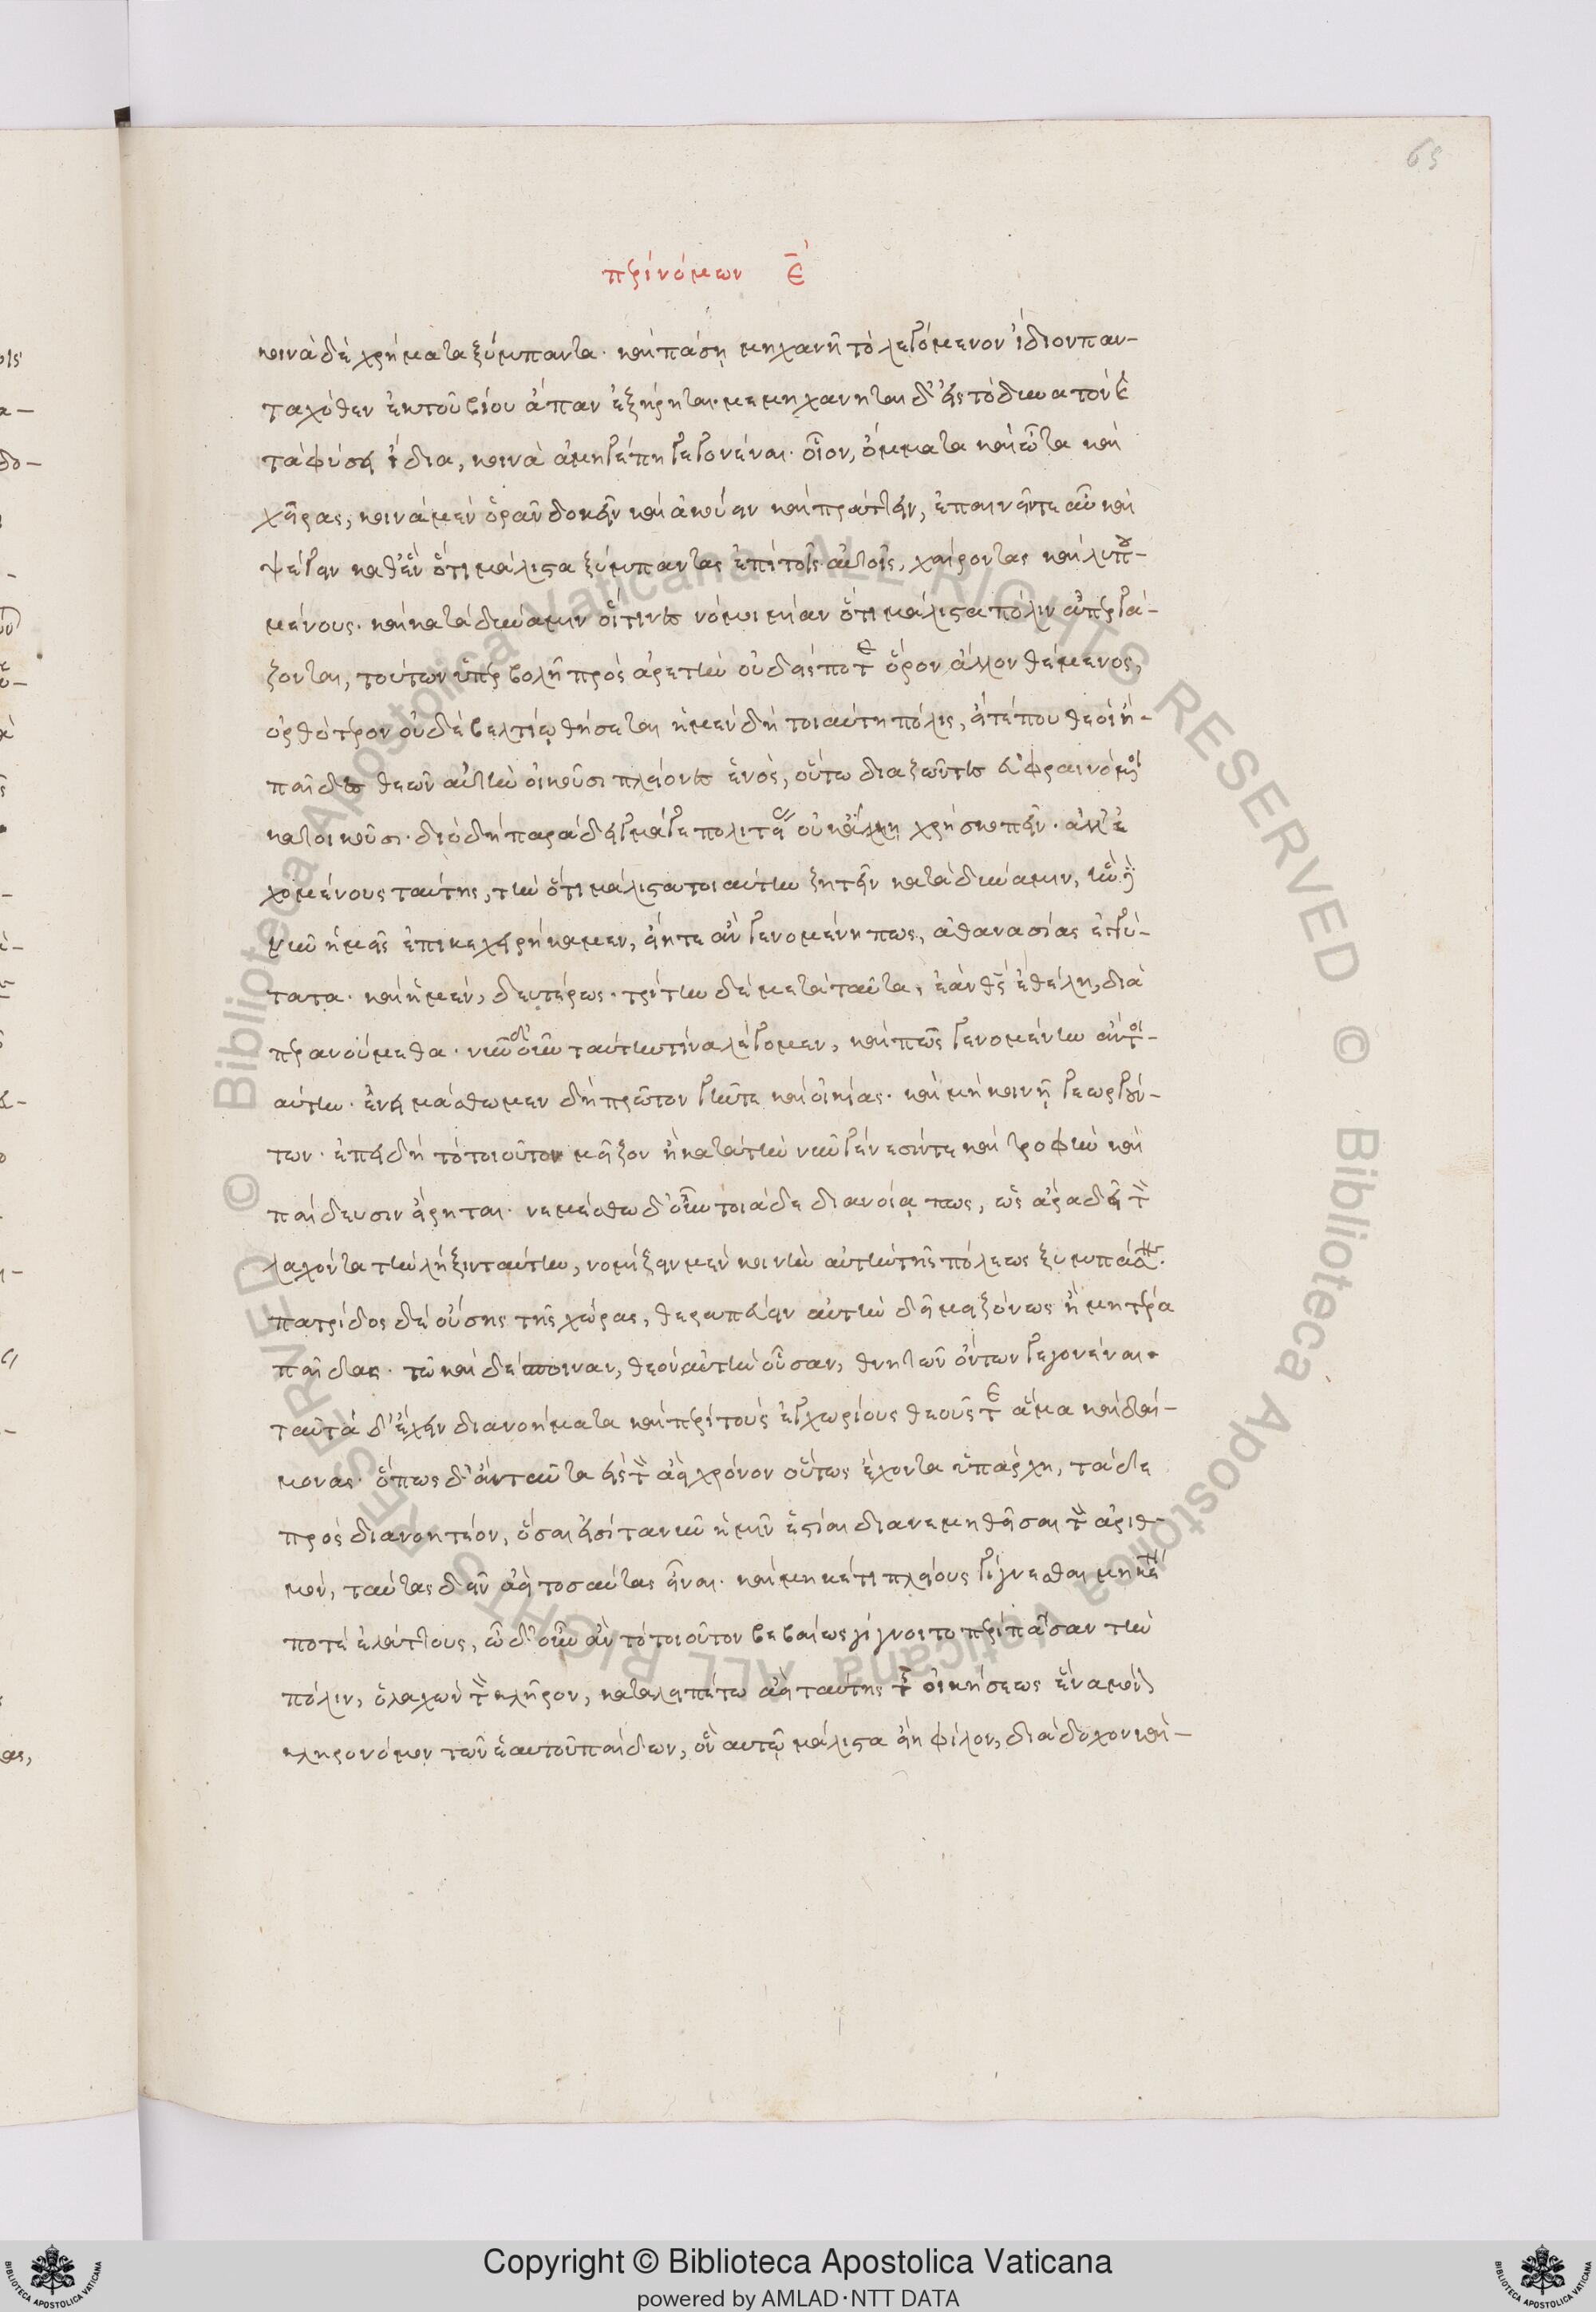 65
περὶ νόμων ε̄ʹ
κοινὰ δὲ χρήματα ξύμπαντα· καὶ πάσῃ μηχανῇ τὸ λεγόμενον ἴδιον παν-
ταχόθεν ἐκ τοῦ βίου ἅπαν ἐξήρηται· μεμηχάνηται δ' εἰς τὸ δυνατὸν καὶ
τὰ φύσει ἴδια, κοινὰ ἀμηγέπη γεγονέναι· οἷον, ὄμματα καὶ ὦτα καὶ
χεῖρας, κοινὰ μὲν ὁρᾶν δοκεῖν καὶ ἀκούειν καὶ πράττειν, ἐπαινεῖν τε αὖ καὶ
ψέγειν καθ' ἓν ὅτι μάλιστα ξύμπαντας ἐπὶ τοῖς αὐτοῖς, χαίροντας καὶ λυπου-
μένους· καὶ κατὰ δύναμιν οἵτινες νόμοι μίαν ὅτι μάλιστα πόλιν ἀπεργά-
ζονται, τούτων ὑπερβολῇ πρὸς ἀρετὴν οὐδείς ποτε ὅρον ἄλλον θέμενος,
ὀρθότερον οὐδὲ βελτίω θήσεται ἡ μὲν δὴ τοιαύτη πόλις, εἴτέ που θεοὶ ἢ-
παῖδες θεῶν αὐτὴν οἰκοῦσι πλείους ἑνός, οὕτω διαζῶντες εὐφραινόμενοι
κατοικοῦσι· διὸ δὴ παράδειγμά γε πολιτείας οὐκ ἄλλῃ χρὴ σκοπεῖν· ἀλλ' ἐ
χομένους ταύτης, τὴν ὅτι μάλιστα τοιαύτην ζητεῖν κατὰ δύναμιν, ἣν
νῦν ἡμεῖς ἐπικεχειρήκαμεν, εἴη τε ἂν γενομένη πως, ἀθανασίας ἐγγύ-
τατα· καὶ ἡ μὲν, δευτέρως· τρίτην δὲ μετὰ ταῦτα, ἐὰν θεὸς ἐθέλῃ, δια
περανούμεθα· νῦν δ' οὖν ταύτην τίνα λέγομεν, καὶ πῶς γενομένην ἂν τοι-
αύτην· ἐνειμάσθωμεν δὴ πρῶτον γῆν τε καὶ οἰκίας· καὶ μὴ κοινῇ γεωργούν-
των· ἐπειδὴ τὸ τοιοῦτον μεῖζον ἢ κατὰ τὴν νῦν γένεσίν τε καὶ τροφὴν καὶ
παίδευσιν εἴρηται· νεμέσθω δ' οὖν τοιᾷδε διανοίᾳ πως, ὡς ἄρα δεῖ τὸν
λαχόντα τὴν λῆξιν ταύτην, νομίζειν μὲν κοινὴν αὐτὴν τῆς πόλεως ξυμπάσης·
πατρίδος δὲ οὔσης τῆς χώρας, θεραπεύειν αὐτὴν δεῖ μειζόνως ἢ μητέρα
παῖδας· τῷ καὶ δέσποιναν, θεὸν αὐτὴν οὖσαν, θνητῶν ὄντων γεγονέναι·
ταῦτὰ δ' ἔχειν διανοήματα καὶ περὶ τοὺς ἐγχωρίους θεούς τε ἅμα καὶ δαί-
μονας· ὅπως δ' ἂν ταῦτα εἰς τὸν ἀεὶ χρόνον οὕτως ἔχοντα ὑπάρχῃ, τάδε
προσδιανοητέον, ὅσαι εἰσὶ τανῦν ἡμῖν ἑστίαι διανεμηθεῖσαι τὸν ἀριθ-
μόν, ταύτας δεῖν ἀεὶ τοσαύτας εἶναι· καὶ μηκέτι πλείους γίγνεσθαι μηδέ
ποτε ἐλάττους, ὧδ' οὖν ἂν τὸ τοιοῦτον βεβαίως γίγνοιτο περὶ πᾶσαν τὴν
πόλιν, ὁ λαχὼν τὸν κλῆρον, καταλειπέτω ἀεὶ ταύτης τῆς οἰκήσεως ἕνα μόνον
κληρονόμον τῶν ἑαυτοῦ παίδων, ὃν αὐτῷ μάλιστα εἴη φίλον, διάδοχον καὶ-
Copyright © Biblioteca Apostolica Vaticana
powered by AMLAD·NTT DATA